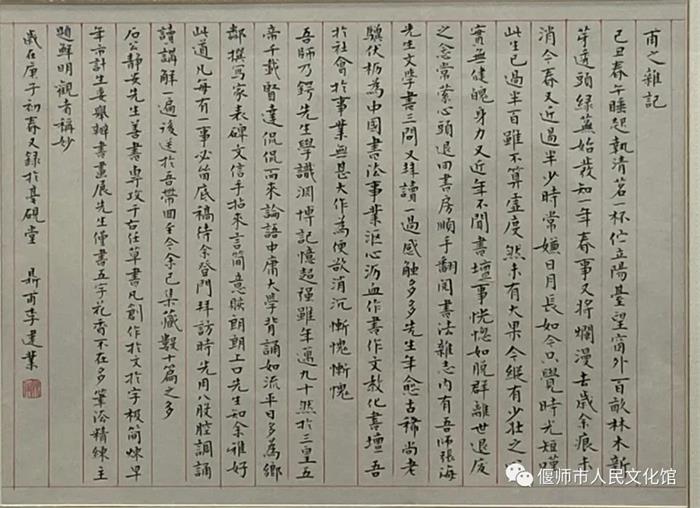 甫之雜記
己丑春午睡起執清茗一杯伫立陽臺望窗外百畝林木新
芽透頭綠蕪始發知一年春事又將爛漫去歲余痕未
消今春又近過半少時常嫌日月長如今只覺時光短嘆
此生已過半百雖不算虛度然未有大果今縱有少壯之
實無健魄身力又近年不聞書壇事恍惚如脱群離世退废
之念常萦心頭退回書房順手翻閱書法雜志内有吾师張海
先生文學書三問又拜讀一過感触多多先生年愈古稀尚老
驥伏枥為中國書法事業漚心沥血作書作文教化書壇吾
於社會於事業無甚大作為便欲消沉慚愧慚愧
吾師乃鍔先生學識渊博記憶超强雖年邁九十然於三皇五
帝千载賢達侃侃而來論語中庸大學背誦如流平日多為鄉
鄰撰寫家表碑文信手拈來言简意赅朗朗上口先生知余雅好
此道凡每有一事必笛底稿待余登門拜訪時先用八股腔調誦
讀講解一遍後送於吾帶回至今余已集藏數十篇之多
石公静安先生善書專攻千古任草書凡創作於文於字極简煉早
年市計生委舉辦書畫展先生僅書五字花香不在多筆法精練主
題鮮明觀者稱妙
歲在庚子初春又録於基硯堂 鼎甫李建業
偃师市人民文化馆